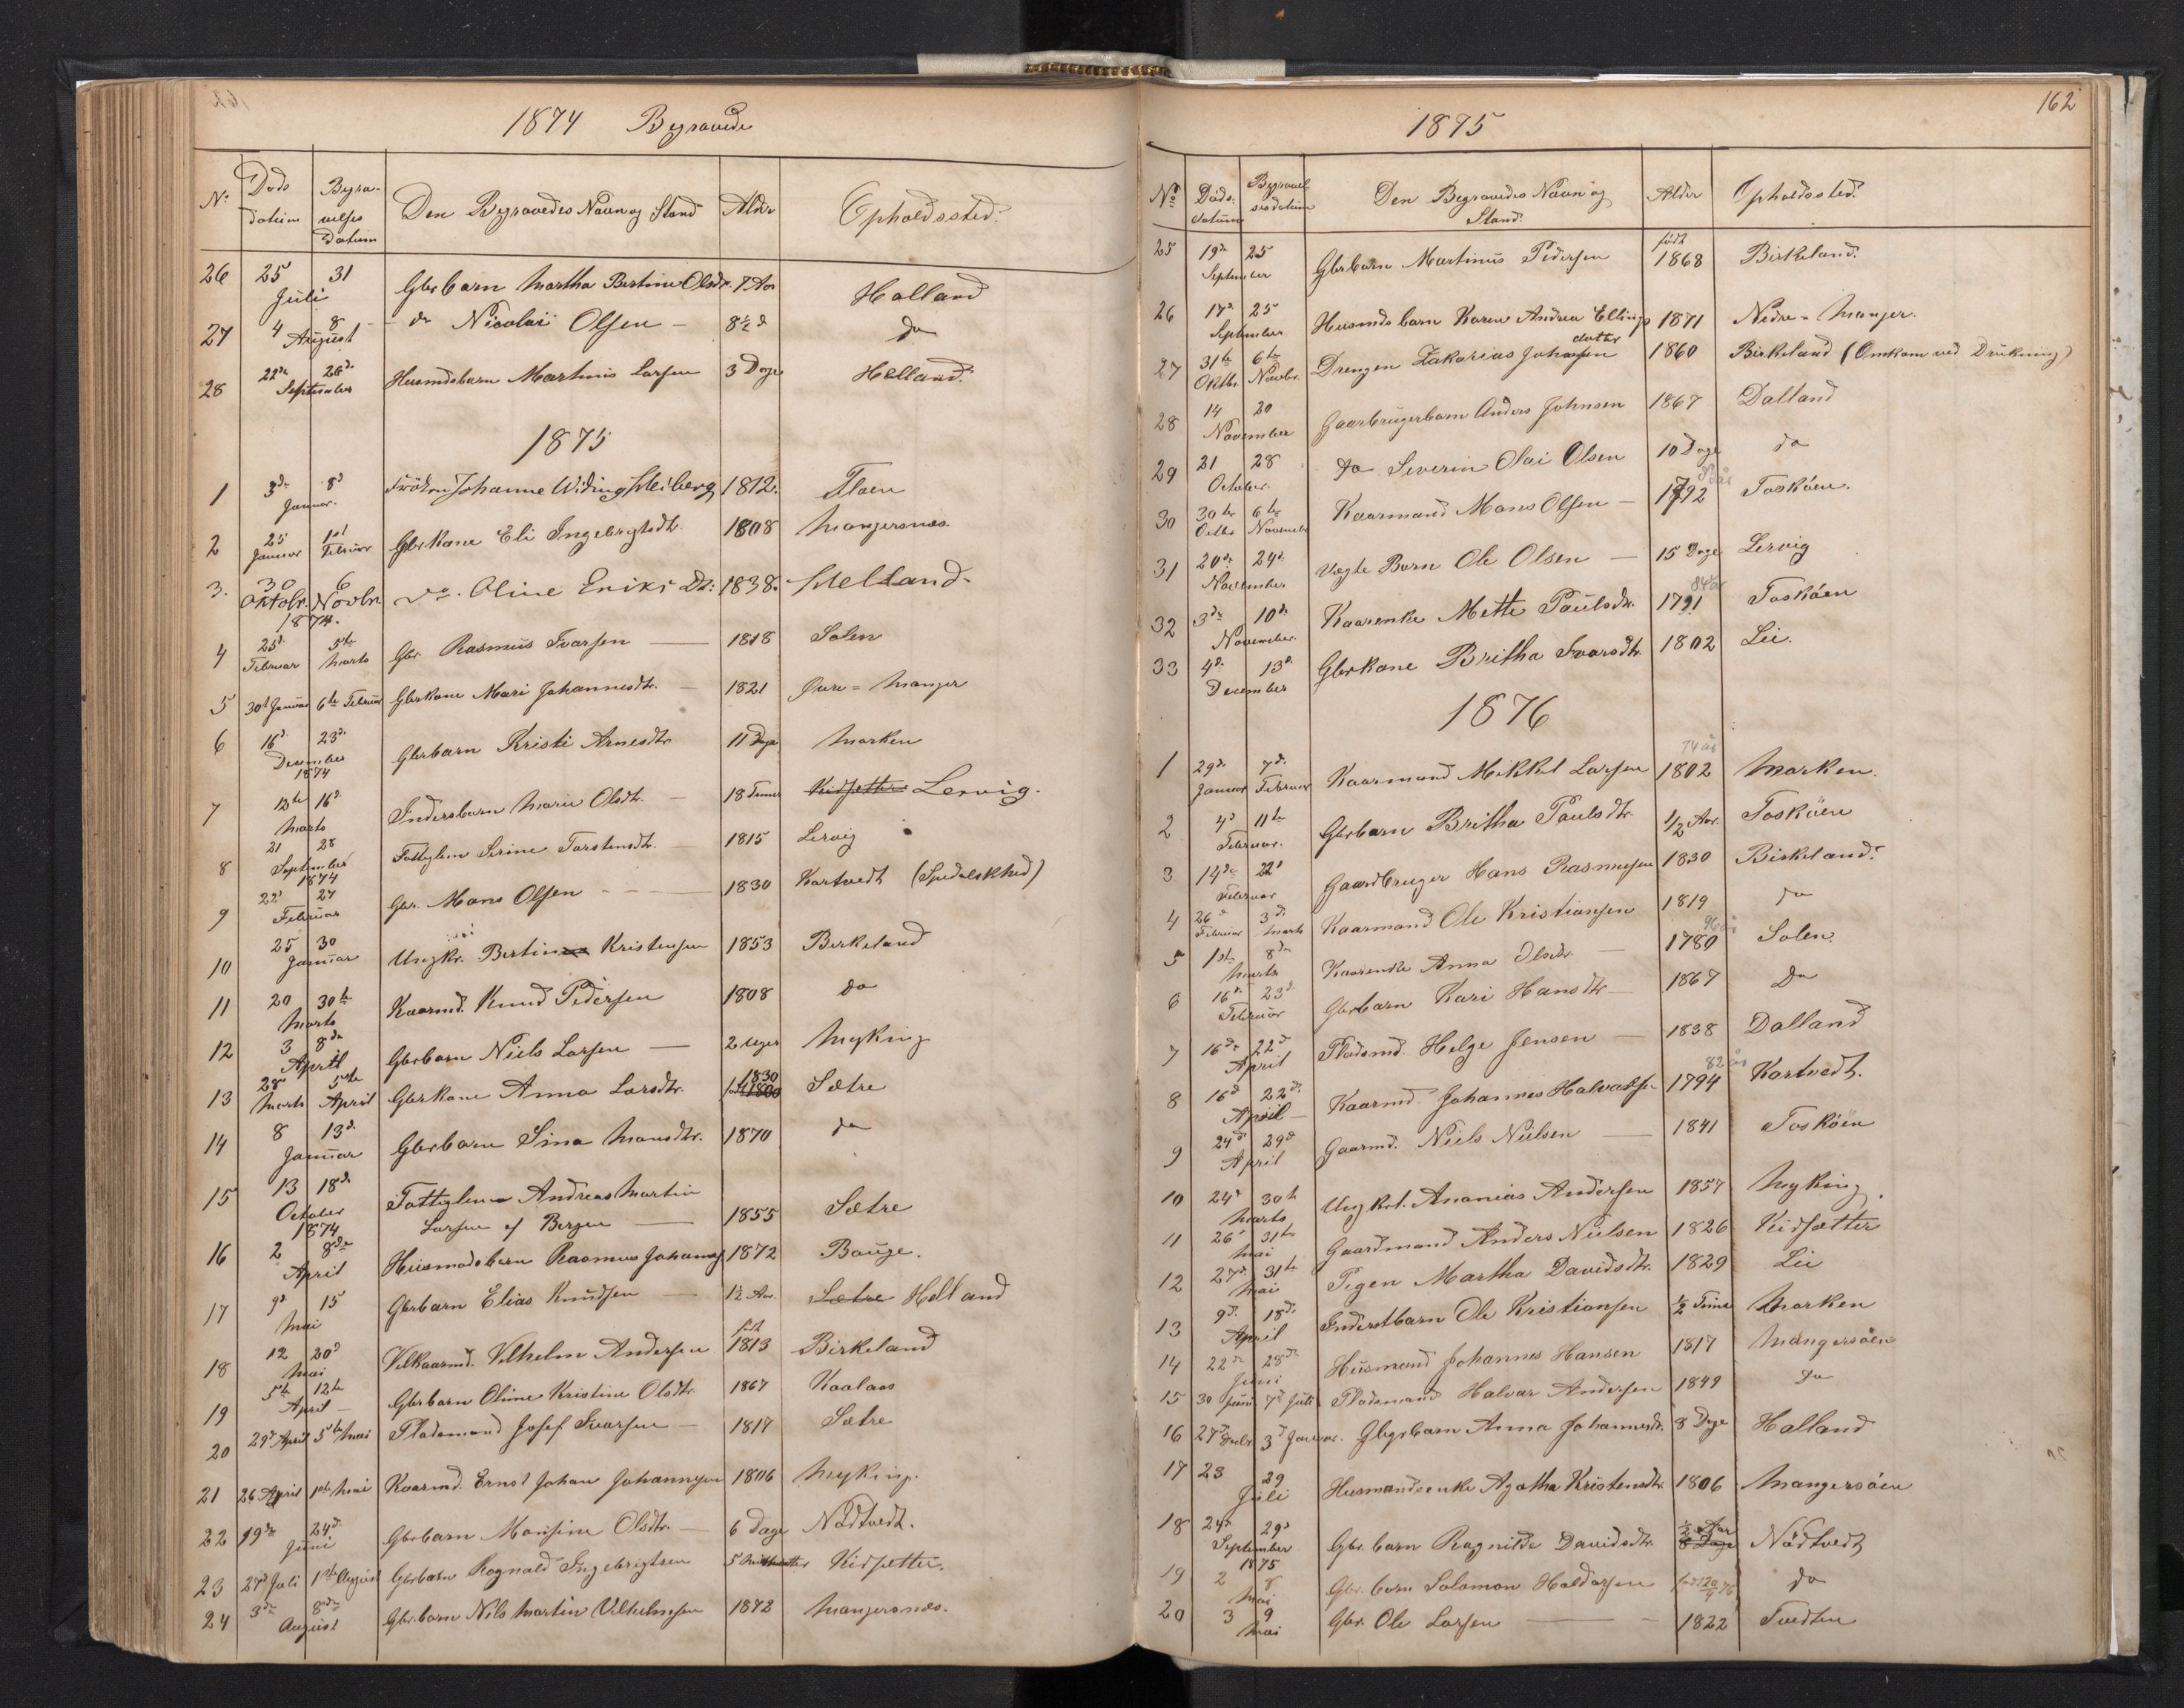 1874 Begravede
No Döds datum Begravelses Datum Den Begravedes Navn og Stand Alder Opholdssted.
26 25 31 Juli Gbrbarn Martha Bertine Olsdr. 7 Aar Halland
27 4 8 August do Nicolai Olsen - 8½ do do
28 22de 26d. September Husmdsbarn Martinus Larsen 3 Dage Helland.
1875
1 3d. 8d Januar. Fröken Johanne Widing Heiberg 1812. Floen
2 25 Januar 1st Februar Gbrkone Eli Ingebrigtsdtr. 1808 Mangersnæs.
3. 30 Oktobr. 6 Novbr. 1874. do. Oline Eriks Dr: 1838. Helland.
4 25d. Februar 5te Marts Gbr Rasmus Ivarsen 1818 Solen
5 30t Januar 6te Februar Gbrkone Mari Johannesdtr. 1821 Övre = Manger
6 16d. 23d. December 1874 Gbrbarn Kristi Arnesdtr 11 Dage Marken
7 12te 16d. Marts Indersbarn Marie Olsdtr. 18 Timer Kidsetter Lervig.
8 21 28 September 1874 Fattiglem Serine Torstensdtr. 1815 Lervig
9 22d 27 Februar Gbr. Mons Olsen 1830 Kartvedt (Spedalskhed)
10 25 30 Januar Ungkr. Bertin Kristensen 1853 Birkeland
11 20 30te Marts Kaarmd. Knud Pedersen 1808 do
12 3 8de April Gbrbarn Niels Larsen 2 Uger Myking
13 28 Marts 5te April Gbrkone Anna Larsdtr. 1830 Sætre
14 8 13d. Januar Gbrbarn Sina Monsdtr. 1870 do
15 13 18de October 1874 Fattiglem Andreas Martin
Larsen af Bergen 1855 Sætre
16 2 8de April Husmandsbarn Rasmus Johannes 1872 Bauge.
17 9d 15 Mai Gbrbarn Elias Knudsen 1½ Aar Sætre Helland
18 12 20d Mai Vilkaarmd. Vilhelm Andersen födt 1813 Birkeland
19 5te 12te April Gbrbarn Oline Kristine Olsdtr 1867 Kaalaas
20 29d April 5te Mai Pladsmand Josef Ivarsen 1817 Sætre
21 26 April 1ste Mai Kaarmd. Ernst Johan Johannesen 1806 Myking.
22 19de 24d. Juni Gbrbarn Monsine Olsdtr. 6 Dage Nödtvedt.
23 27d Juli 1ste August Gbrbarn Rognald Ingebrigtsen 5 Kidsetter.
24 3de 8de August Gbr.barn Nils Martin Vilhelmsen 1872 Mangersnæs.
1875
162
No Döds. datum Begravelsesdatum Den Begravedes Navn og Stand. Alder Opholdssted.
25 19de 25 September Gbrbarn Martinus Pedersen födt 1868 Birkeland.
26 17d 25 September Husmdsbarn Karen Andrea Ellings datter 1871 Nedre = Manger.
27 31te Oktbr. 6te Novbr. Drengen Zakarias Johnsen 1860 Birkeland (Omkom ved Drukning)
28 14 20 November Gaarbrugerbarn Anders Johnsen 1867 Dalland
29 21 28 October. do Severin Olai Olsen 10 Dage do
30 30te Octbr 6te Novembr Kaarmand Mons Olsen 1792 Toskøen.
31 20de 24d. November Legts Barn Ole Olsen 15 Dage Lervig
32 3de 10d. November. Kaarenke Mette Paulsdtr. 1791 84 år Toskøen
33 4d. 13d. December Gbrkone Britha Ivarsdtr. 1802 Lie.
1876
1 29d. Januar 7d. Februar Kaarmand Mikkel Larsen 1802 74 år Marken.
2 4d 11te Februar. Gbrbarn Britha Paulsdtr. 1/2 Aar. Toskøen
3 14de 22d Februar Gaardbruger Hans Rasmusen 1830 Birkeland.
4 26d Februar 3d. Marts Kaarmand Ole Kristiansen 1819 do
5 1ste 8de Marts Kaarenke Anna Olsdtr. 1780 96 år Solen.
6 16d. 23d. Februar Gbrbarn Kari Hansdtr 1867 do
7 16de 22d April Pladsmd. Helge Jensen 1838 Dalland
8 16d 22d. April Kaarmd. Johannes Halvorsen 1794 82 år Kartvedt.
9 24d. 29d April Gaarmd. Niels Nielsen 1841 Toskøen
10 24d 30te Marts Ungkrl. Ananias Andersen 1857 Myking.
11 26d 31te Mai Gaardmand Anders Nielsen 1826 Kidsætter
12 27d 31te Mai Pigen Martha Davidsdtr. 1829 Lie
13 9d. 18d. April Inderstbarn Ole Kristiansen ½ Time Marken
14 22de 28de Juni Husmand Johannes Hansen 1817 Mangersøen
15 30 Juni 7d Juli Pladsmand Halvar Andersen 1849 do
16 27d Decbr 3d Januar. Gbgrbarn Anna Johannesdtr. 8 Dage Halland
17 23 29 Juli Husmandsenke Agatha Kristensdtr. 1806 Mangersøen
18 24d 29d September 1875 Gbr.barn Ragnilde Davidsdtr ½ Aar 8 Dage Nödtvedt
19 2 8 Mai Gbr.barn Salomon Haldorsen do
20 3 9 Mai Gbr. Ole Larsen 1822 Tvedten